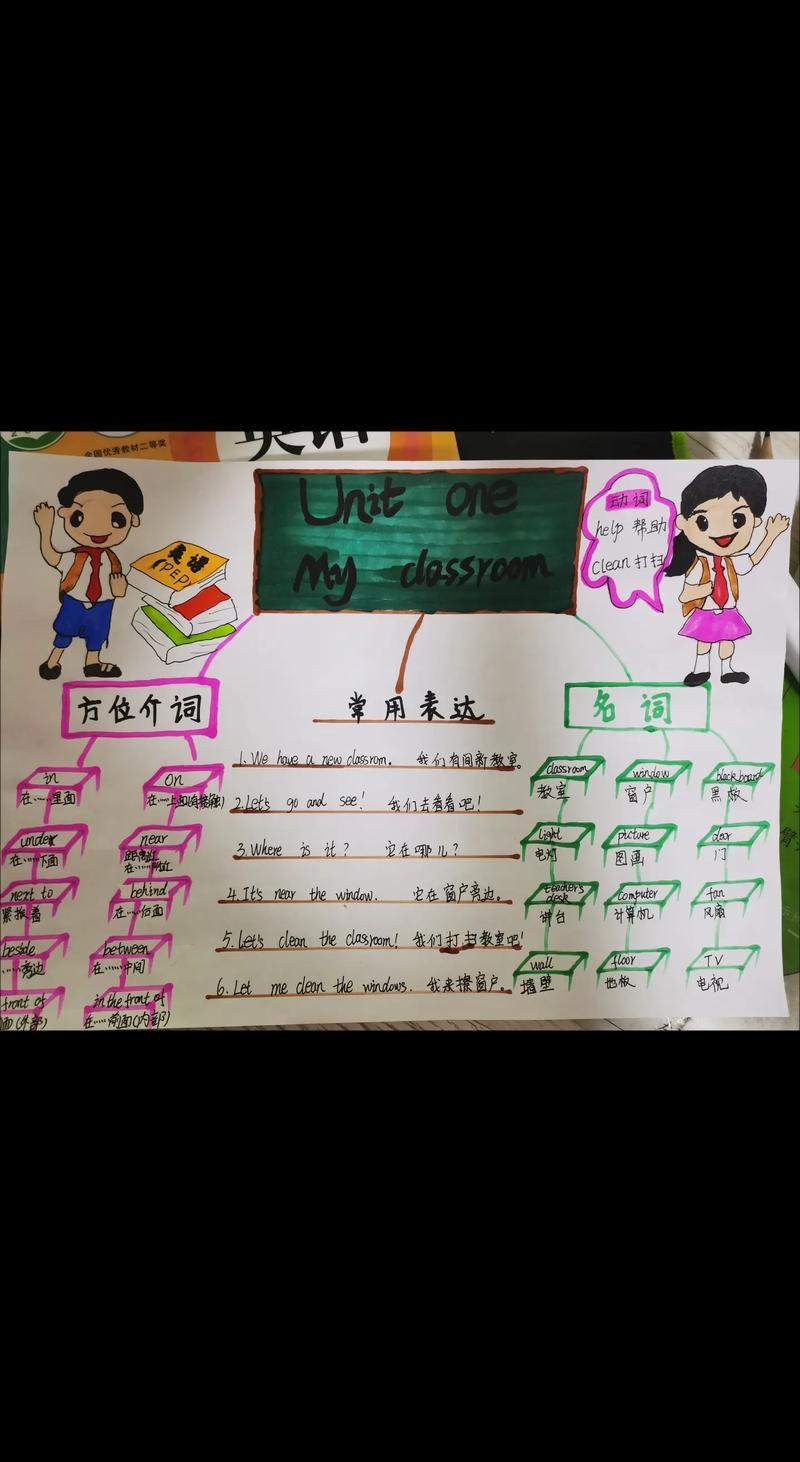 全国优秀教材二等奖
英语
Unit one
My classroom
英语
(PEP)
动词
help 帮助
clean 打扫
方位介词
in
在……里面
on
在……上面(有接触)
under
在……下面
near
距离近
在……附近
next to
紧挨着
behind
在……后面
beside
……旁边
between
在……中间
front of
面(外部)
in the front of
在……前面(内部)
常用表达
1. We have a new classrom. 我们有间新教室。
2. Let's go and see! 我们去看看吧!
3. Where is it? 它在哪儿?
4. It's near the window. 它在窗户旁边。
5. Let's clean the classroom! 我们打扫教室吧!
6. Let me clean the windows. 我来擦窗户。
名词
classroom
教室
window
窗户
blackboard
黑板
light
电灯
picture
图画
door
门
teacher's
desk
讲台
computer
计算机
fan
风扇
wall
墙壁
floor
地板
TV
电视